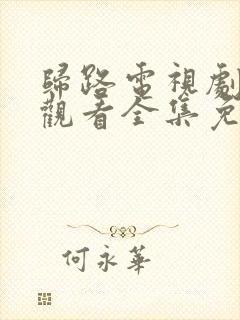 歸路電視劇
觀看全集免
何永華